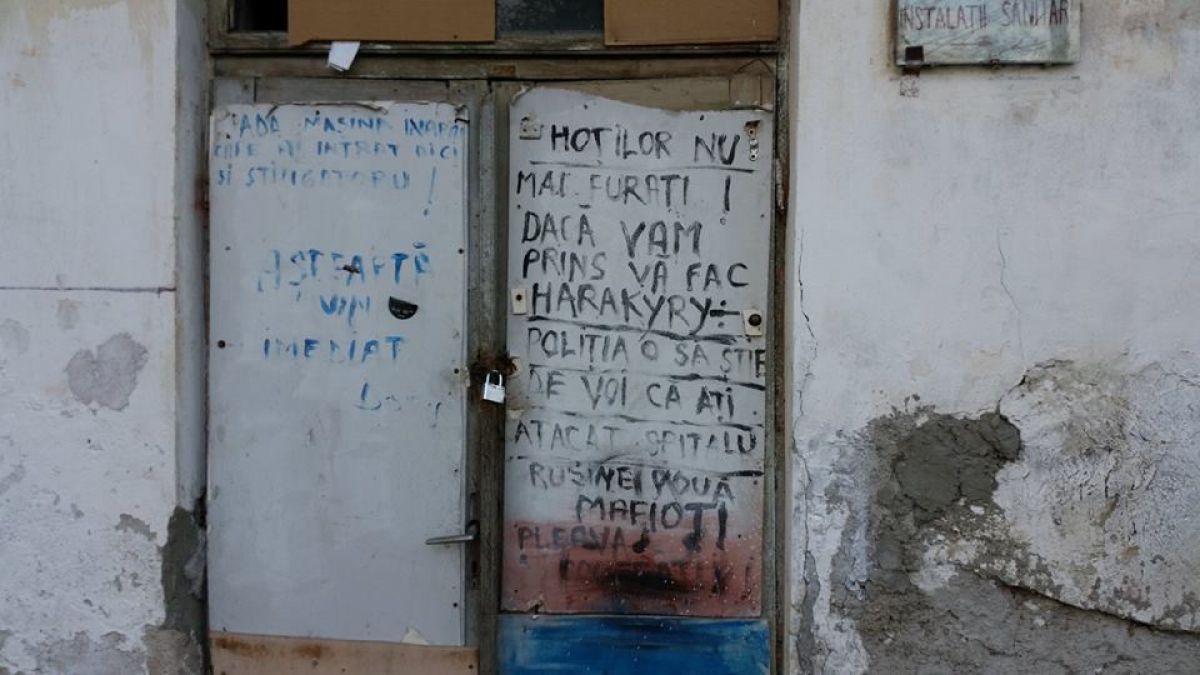 INSTALAȚII SANITAR
MAȘINA
INTRAT AICI
ȘI STINGĂTORU !
AȘTEAPTĂ
VIN
IMEDIAT
HOȚILOR NU
MAI FURAȚI !
DACĂ VAM
PRINS VĂ FAC
HARAKYRY
POLIȚIA O SĂ ȘTIE
DE VOI CA AȚI
ATACAT SPITALU
RUȘINE VOUĂ
MAFIOȚI
PLEAVA